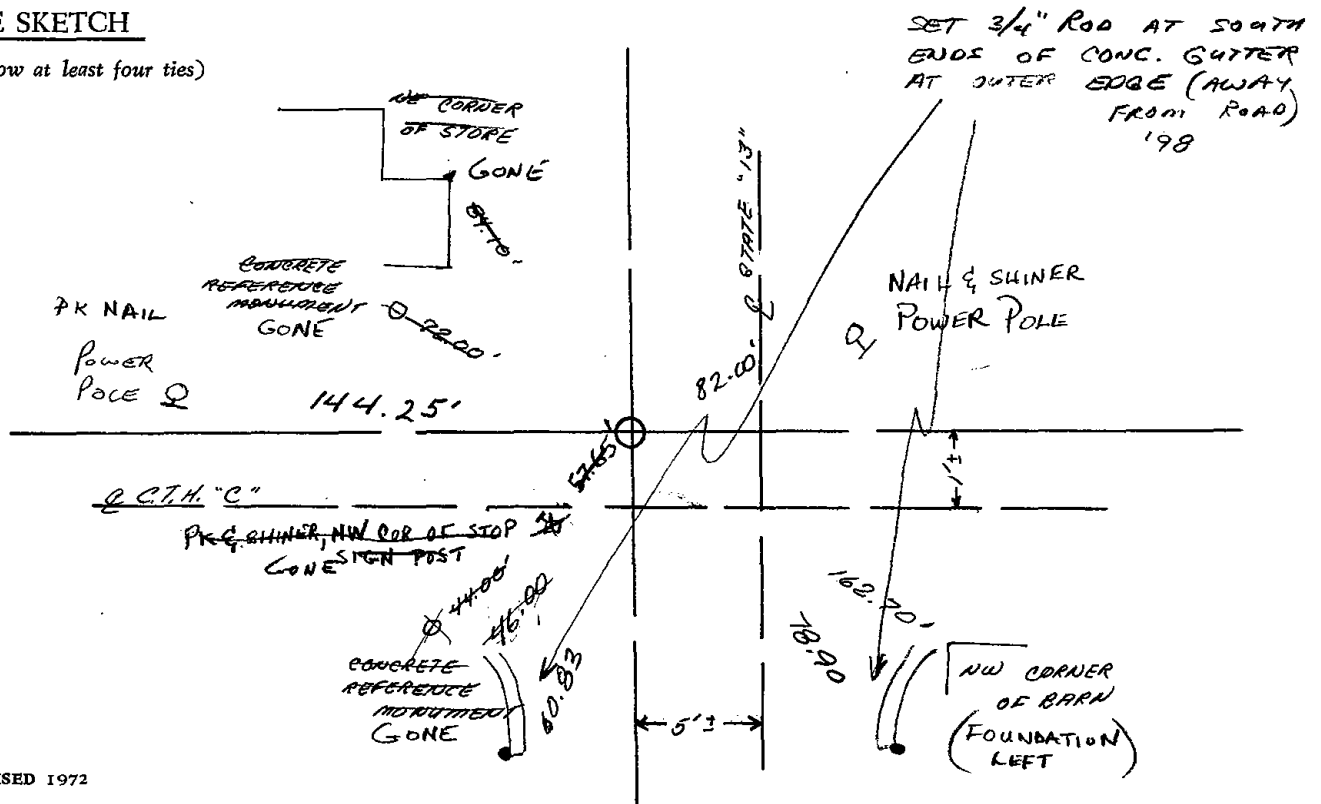 E SKETCH
ow at least four ties)
SET 3/4" ROD AT SOUTH
ENDS OF CONC. GUTTER
AT OUTER EDGE (AWAY
FROM ROAD)
'98
NE CORNER
OF STORE
GONE
CONCRETE
REFERENCE
MONUMENT
GONE
72.00'
PK NAIL
POWER
POLE
144.25'
℄ STATE "13"
82.00'
NAIL & SHINER
POWER POLE
57.65'
1'±
℄ C.T.H. "C"
PK & SHINER, NW COR OF STOP
SIGN POST
GONE
44.00'
46.00
CONCRETE
REFERENCE
MONUMENT
GONE
60.83
5'±
162.70'
78.90
NW CORNER
OF BARN
(FOUNDATION
LEFT)
SED 1972